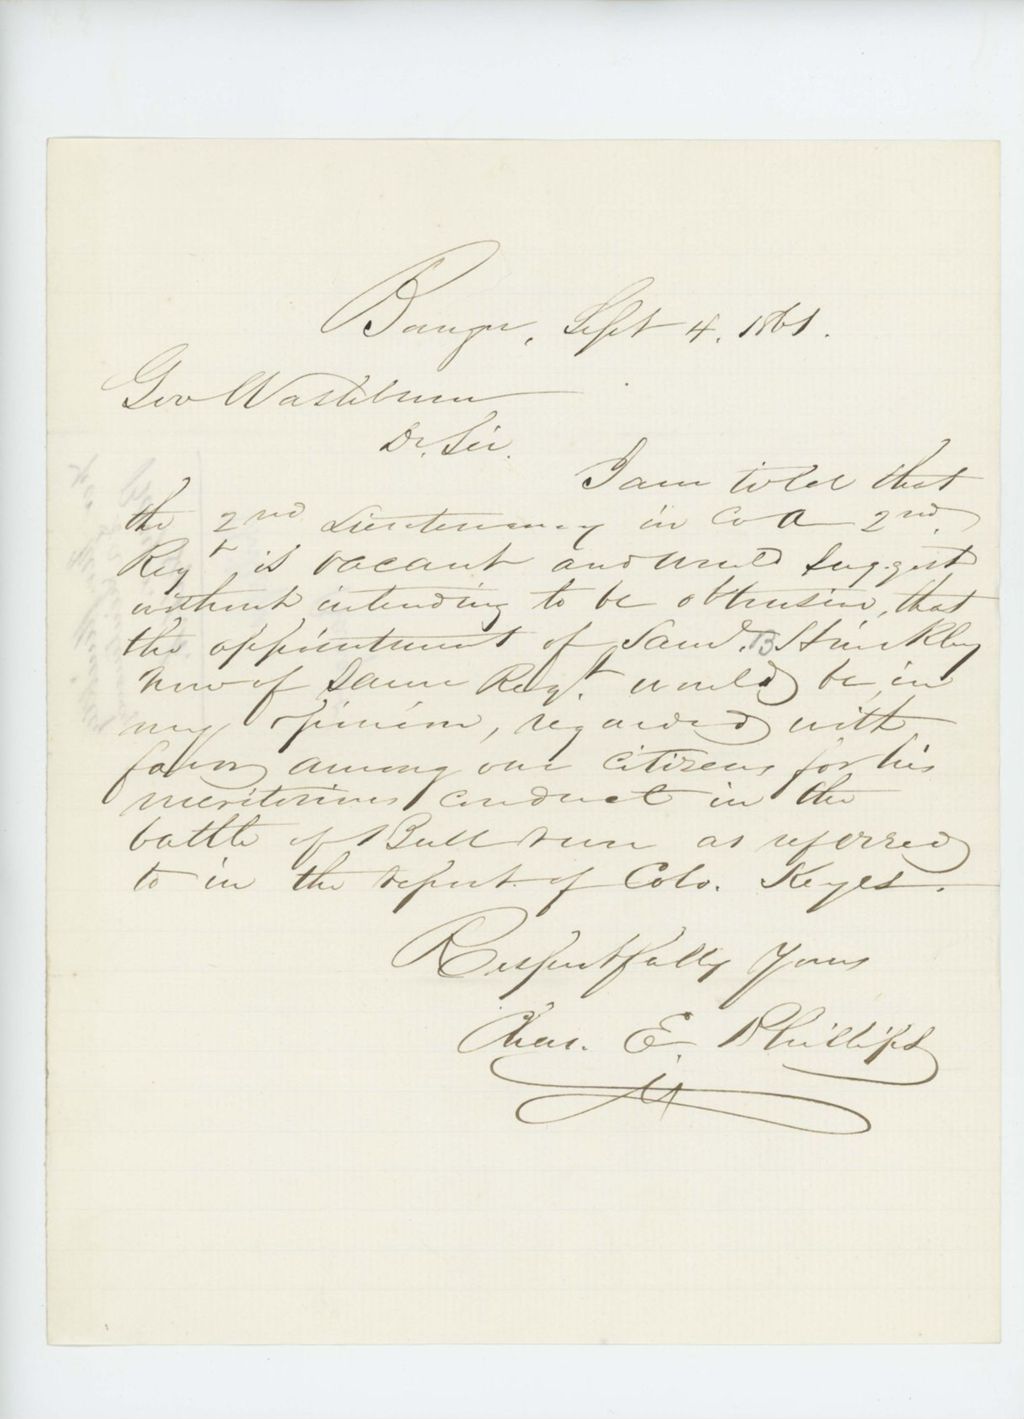 Bangor, Sept 4. 1861.
Gov Washburn
Dr. Sir.
I am told that
the 2nd Lieutenancy in Co A 2nd
Regt is vacant and would suggest
without intending to be obtrusive, that
the appointment of Saml. B Hinckley
now of Same Regt. would be, in
my opinion, regarded with
favor among our citizens for his
meritorious conduct in the
battle of Bull run as referred
to in the report of Colo. Keyes.
Respectfully Yours
Chas. E. Phillips